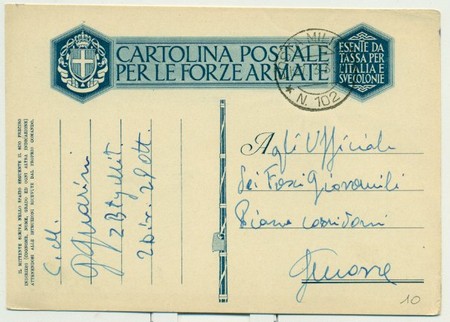 CARTOLINA POSTALE
PER LE FORZE ARMATE
ESENTE DA
TASSA PER
L'ITALIA E
SUE COLONIE
N. 102
Agli Ufficiali
dei Fasci Giovanili
Genova
C. M.
2 Btg Mit.
10
IL MITTENTE SCRIVA NELLO SPAZIO SEGUENTE IL SUO PRECISO
INDIRIZZO (COGNOME, NOME, GRADO ED OGNI ALTRA INDICAZIONE)
ATTENENDOSI ALLE ISTRUZIONI RICEVUTE DAL PROPRIO COMANDO.